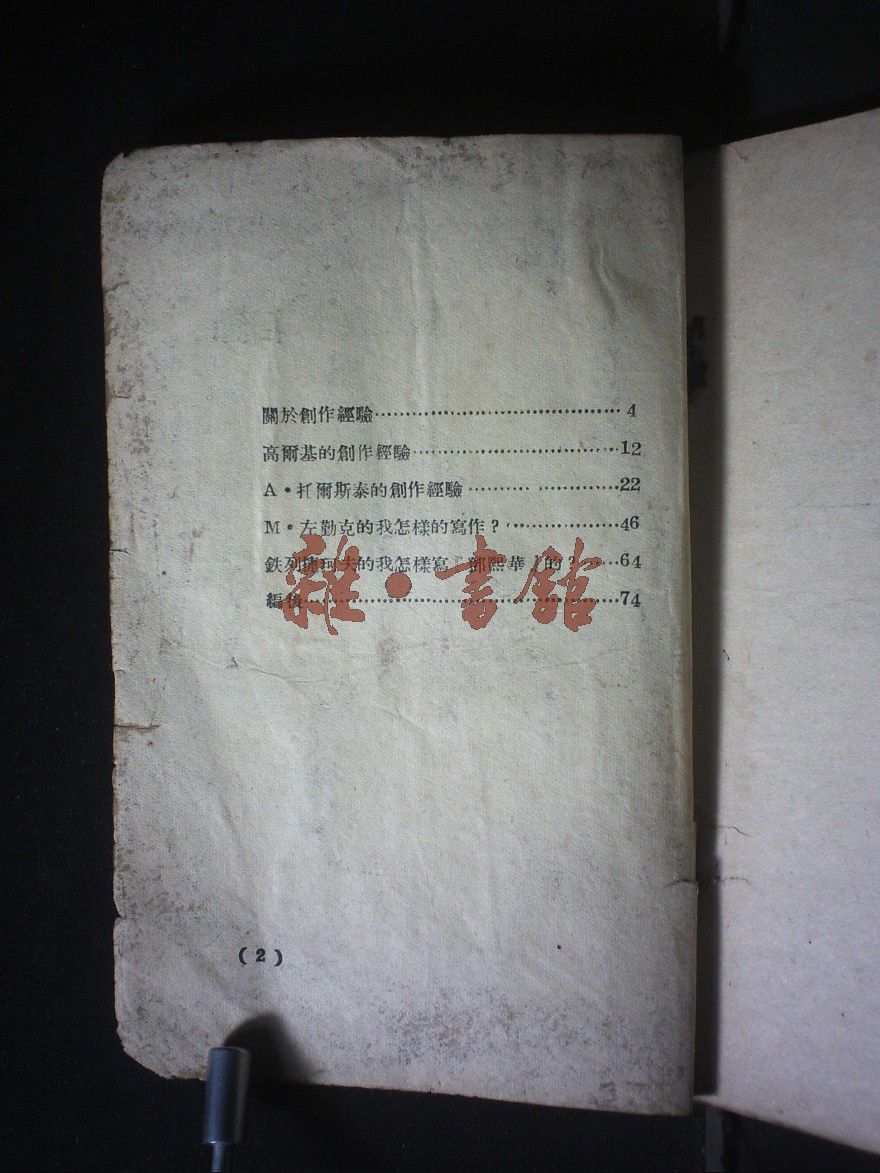 關於創作經驗……………………………4
高爾基的創作經驗………………………12
A·托爾斯泰的創作經驗…………………22
M·左勤克的我怎樣的寫作?……………46
鉄列 的我怎樣寫『鄧熙華』的?……64
編後………………………………………74
雜·書館
(2)